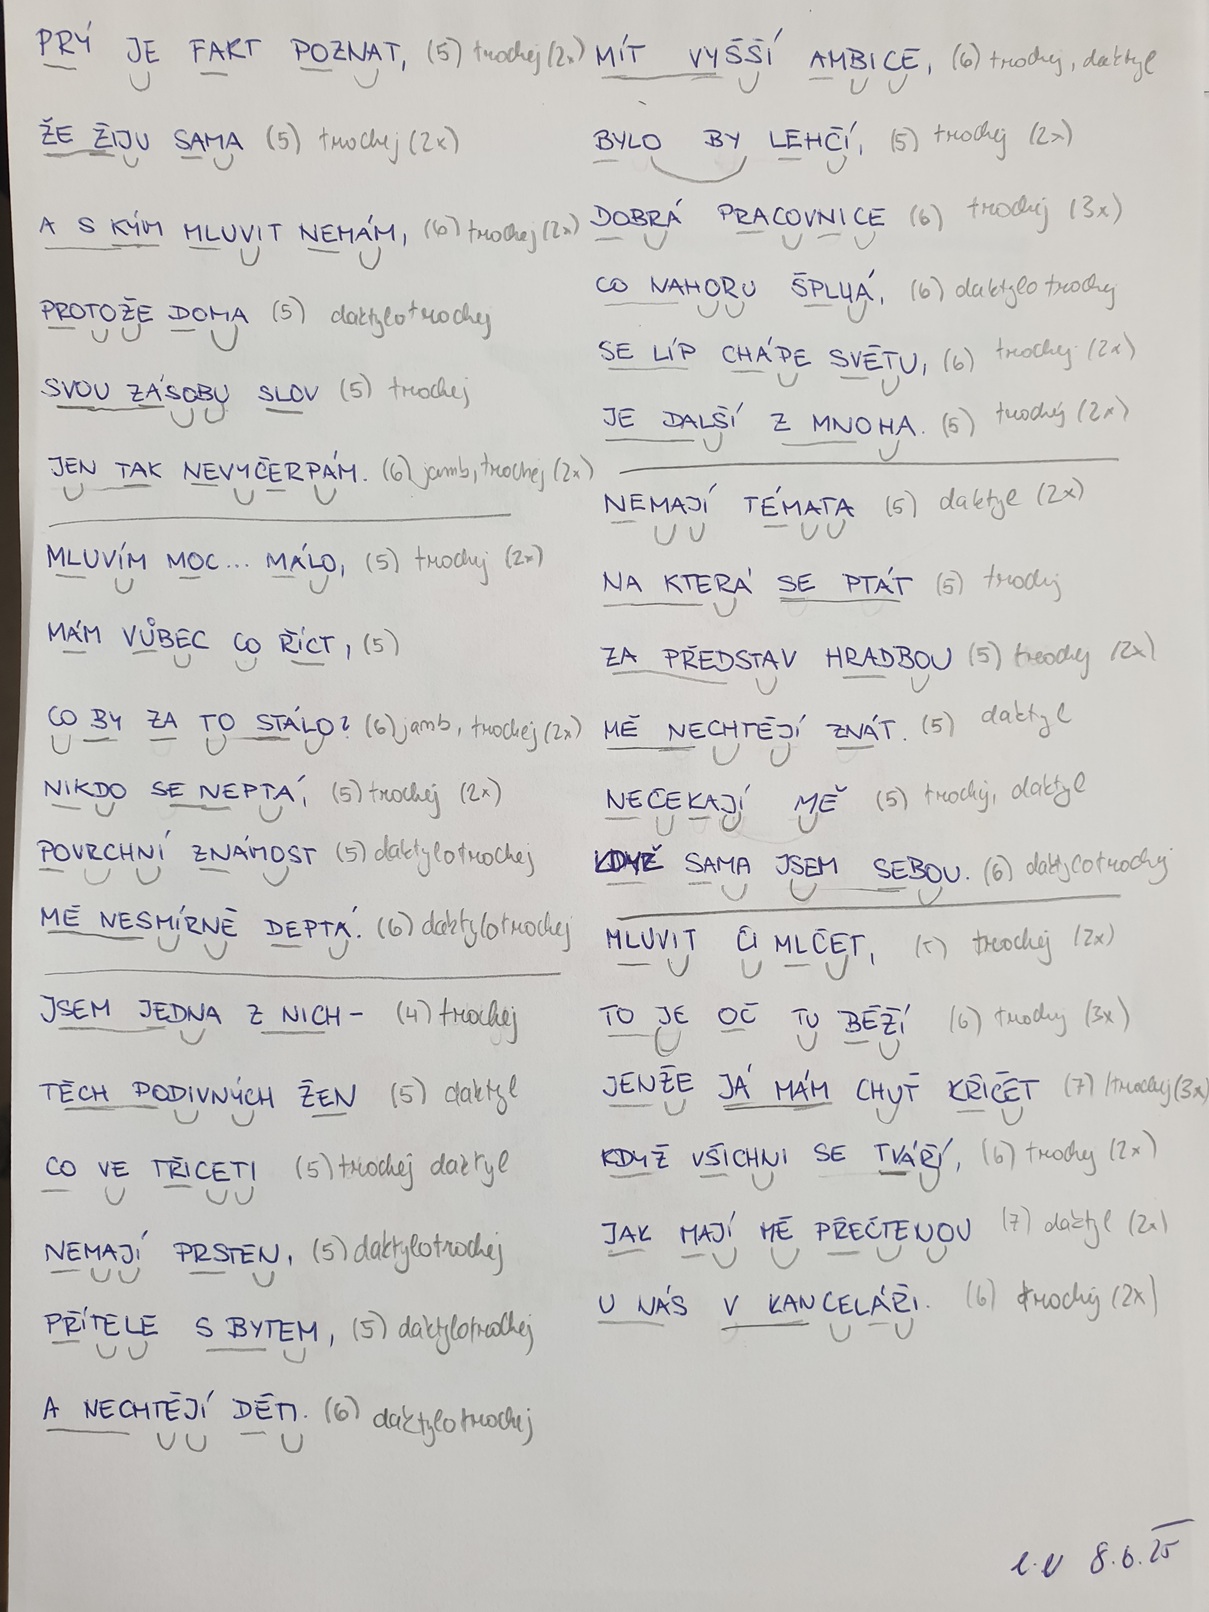 PRÝ JE FAKT POZNAT, (5) trochej (2x)
ŽE ŽIJU SAMA (5) trochej (2x)
A S KÝM MLUVIT NEMÁM, (6) trochej (2x)
PROTOŽE DOMA (5) daktylotrochej
SVOU ZÁSOBU SLOV (5) trochej
JEN TAK NEVYČERPÁM. (6) jamb, trochej (2x)
MLUVÍM MOC... MÁLO, (5) trochej (2x)
MÁM VŮBEC CO ŘÍCT, (5)
CO BY ZA TO STÁLO? (6) jamb, trochej (2x)
NIKDO SE NEPTÁ, (5) trochej (2x)
POVRCHNÍ ZNÁMOST (5) daktylotrochej
MĚ NESMÍRNĚ DEPTÁ. (6) daktylotrochej
JSEM JEDNA Z NICH - (4) trochej
TĚCH PODIVNÝCH ŽEN (5) daktyl
CO VE TŘICETI (5) trochej daktyl
NEMAJÍ PRSTEN, (5) daktylotrochej
PŘÍTELE S BYTEM, (5) daktylotrochej
A NECHTĚJÍ DĚTI. (6) daktylotrochej
MÍT VYŠŠÍ AMBICE, (6) trochej, daktyl
BYLO BY LEHČÍ, (5) trochej (2x)
DOBRÁ PRACOVNICE (6) trochej (3x)
CO NAHORU ŠPLHÁ, (6) daktylotrochej
SE LÍP CHÁPE SVĚTU, (6) trochej (2x)
JE DALŠÍ Z MNOHA. (5) trochej (2x)
NEMAJÍ TÉMATA (5) daktyl (2x)
NA KTERÁ SE PTÁT (5) trochej
ZA PŘEDSTAV HRADBOU (5) trochej (2x)
MĚ NECHTĚJÍ ZNÁT. (5) daktyl
NEČEKAJÍ MĚ (5) trochej, daktyl
KDYŽ SAMA JSEM SEBOU. (6) daktylotrochej
MLUVIT ČI MLČET, (5) trochej (2x)
TO JE OČ TU BĚŽÍ (6) trochej (3x)
JENŽE JÁ MÁM CHUŤ KŘIČET (7) trochej (3x)
KDYŽ VŠICHNI SE TVÁŘÍ, (6) trochej (2x)
JAK MAJÍ MĚ PŘEČTENOU (7) daktyl (2x)
U NÁS V KANCELÁŘI. (6) trochej (2x)
8.6.25